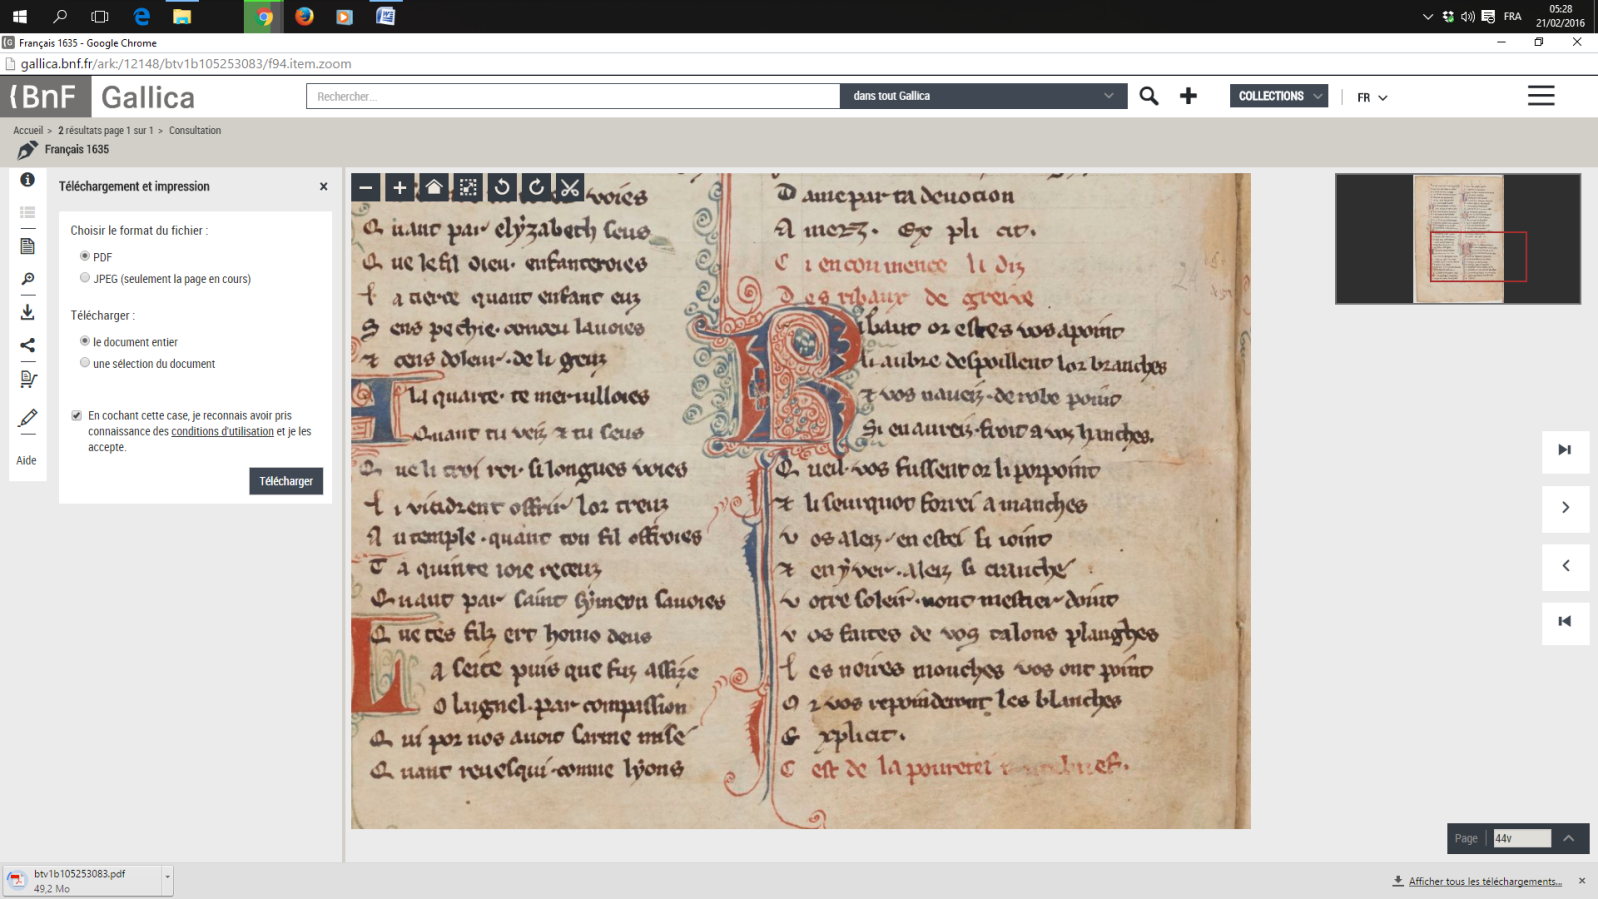 05:28
FRA
21/02/2016
Français 1635 - Google Chrome
gallica.bnf.fr/ark:/12148/btv1b105253083/f94.item.zoom
BnF Gallica
Rechercher...
dans tout Gallica
COLLECTIONS
FR
Accueil > 2 résultats page 1 sur 1 > Consultation
Français 1635
Téléchargement et impression
Choisir le format du fichier :
PDF
JPEG (seulement la page en cours)
Télécharger :
le document entier
une sélection du document
En cochant cette case, je reconnais avoir pris
connaissance des conditions d'utilisation et je les
accepte.
Télécharger
Aide
voies
Quant par elyzabeth seus
Que le fil dieu. enfanteroies
La tierce quant enfant euz
Sens pechie. conceu lauoies
Et cens doleur. de li greuz
La quarte. te meruilloies
Quant tu veiz et tu seus
Que li troi roi. si longues voies
Li vindrent offrir lor treuz
Au temple. quant ton fil offroies
Ta quinte ioie receuz
Quant par saint symeon sauoies
Que tes filz ert homo deus
La seite puis que fuz assize
O laignel. par compassion
Qui por nos auoit sarme mise
Quant reuesqui. comme lyons
Dame par ta deuocion
Amerz. Explicit.
Ci encoumence li diz
Des ribaux de greiue
Ribaut or estes vos a point
Li aubre despoillent lor branches
Et vos naueiz. de robe point
Si en aureiz. froit a voz hanches.
Queil. vos fussent or li porpoint
Et li seurquot forrei a manches
Vos aleiz. en estei si ioint
Et en yuer. aleiz si cranche
Votre soleir. nont mestier doint
Vos faites de vos talons planghes
Les noires mouches vos ont point
Or vos repoinderont les blanches
Explicit.
Cest de la pouretei
Page
44v
btv1b105253083.pdf
49,2 Mo
Afficher tous les téléchargements...